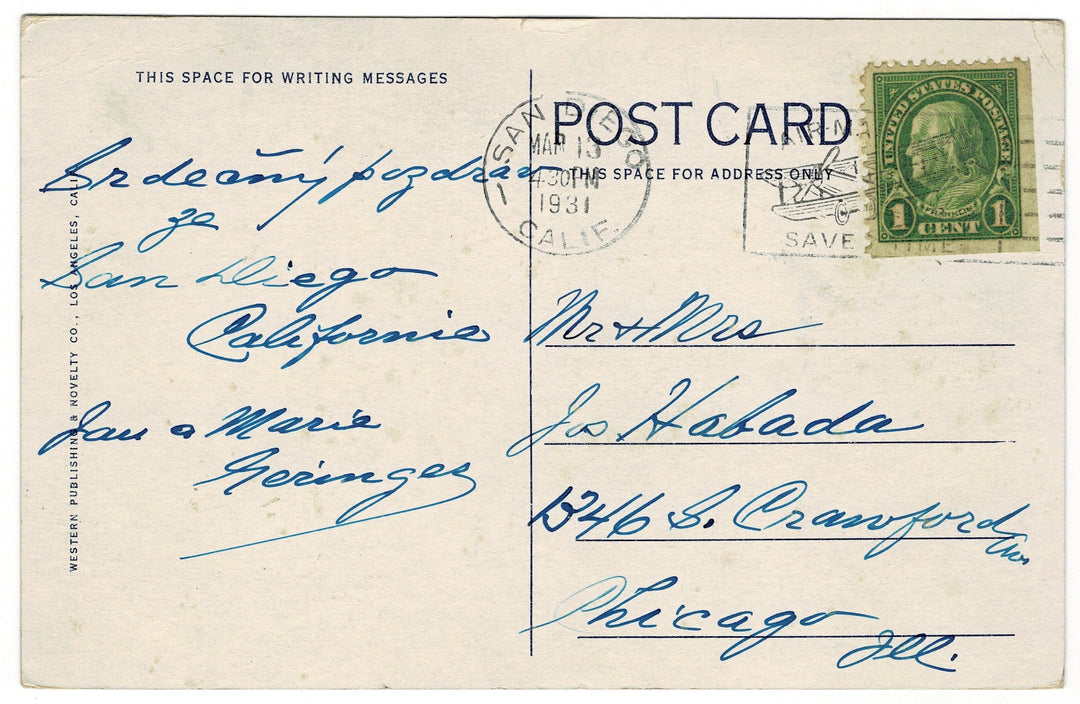 THIS SPACE FOR WRITING MESSAGES
Srdečný pozdrav
ze
San Diego
California
Jan a Marie
Geringer
WESTERN PUBLISHING & NOVELTY CO., LOS ANGELES, CALIF.
POST CARD
THIS SPACE FOR ADDRESS ONLY
SAN DIEGO
MAR 13
4-30PM
1931
CALIF.
AIR M
SAVE
TIME
UNITED STATES POSTAGE
FRANKLIN
1 CENT 1
Mr & Mrs
Jos Habada
1346 S. Crawford
Ave
Chicago
Ill.